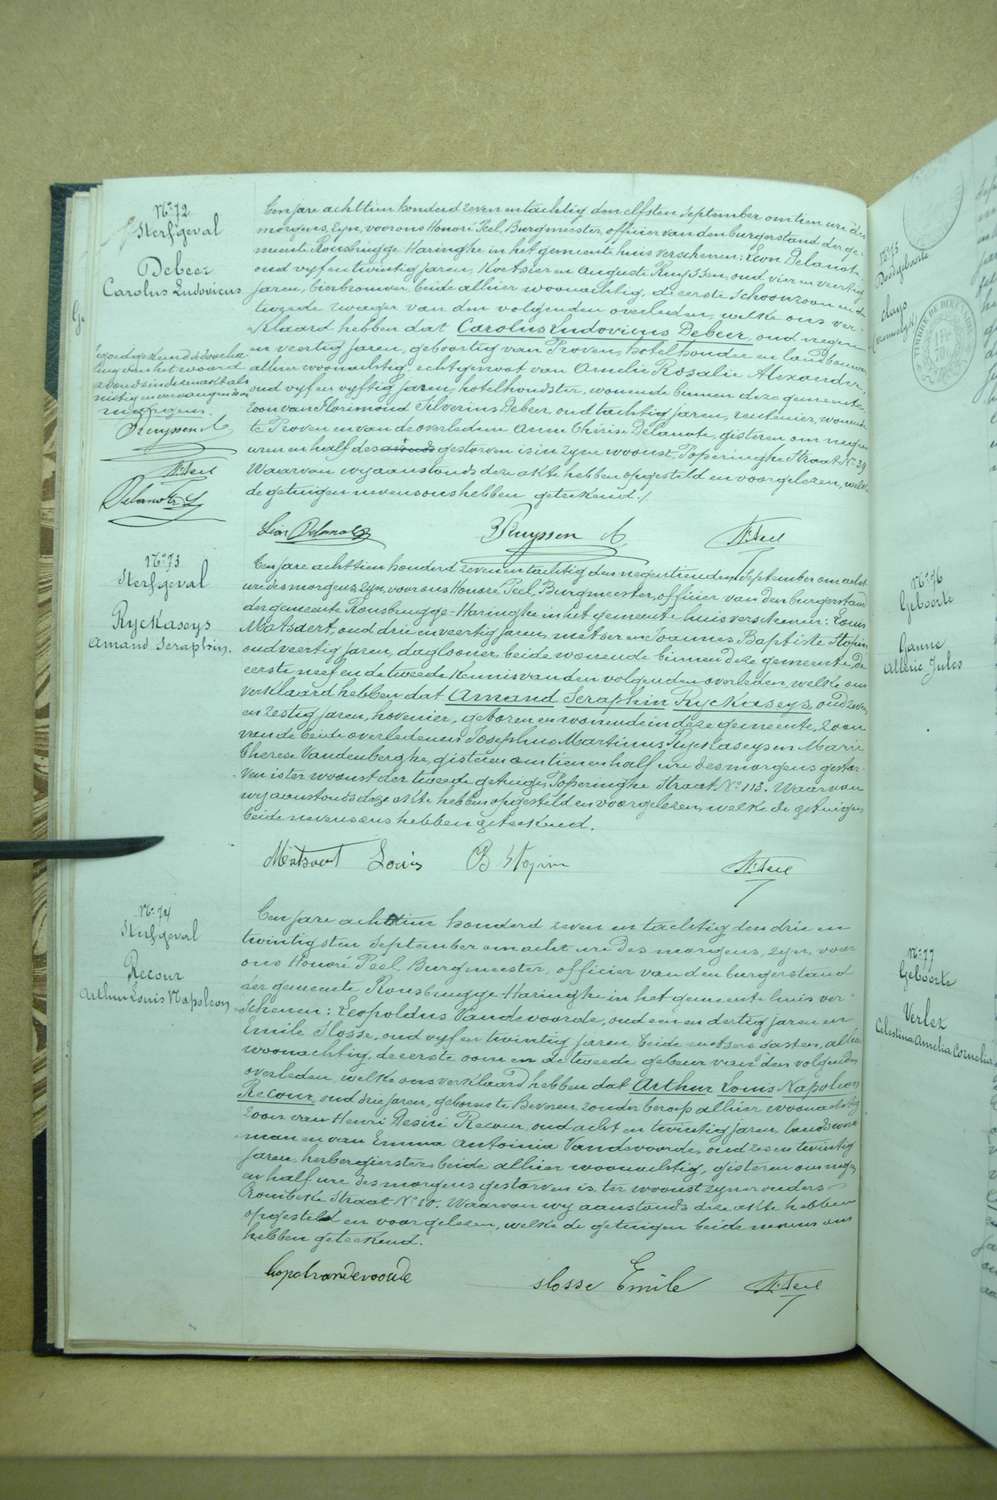 Nr. 72
Sterfgeval
Debeer
Carolus Ludovicus
Een jare achttien honderd zeven en tachtig den elfsten September om tien ure des
morgens, zyn, voor ons Honoré Peel, Burgmeester, officier van den burgerstand der ge-
meente Rousbrugge-Haringhe in het gemeente huis verschenen: Leon Delanote,
oud vyf en twintig jaren, Koetsier en Auguste Ruyssen, oud vier en veertig
jaren, bierbrouwer, beide alhier woonachtig, de eerste schoonzoon en de
tweede zwager van den volgenden overleden, welke ons ver-
klaard hebben dat Carolus Ludovicus Debeer, oud negen
en veertig jaren, geboortig van Proven, hotelhouder en landbouwer
alhier woonachtig, echtgenoot van Amelie Rosalie Alexander,
oud vyf en vyftig jaren, hotelhoudster, wonende binnen deze gemeente,
zoon van Florimond Silverius Debeer, oud tachtig jaren, rentenier, wonende
te Proven en van de overledene Anne Thérèse Delanote, gisteren om negen
uren en half des avonds gestorven is in zyne woonst, Poperinghe Straat Nr. 29
Waarvan wy aanstonds deze akte hebben opgesteld en voorgelezen, welke
de getuigen nevens ons hebben geteekend./
Goedgekeurd de doorha-
ling van het woord
avonds in de
nietig en vervangen door
morgens.
Ruyssen A
H. Peel
Delanote L
Léon Delanote
Ruyssen A
H. Peel
Nr. 73
Sterfgeval
Ryckaseys
Amand Seraphin.
Een jare achttien honderd zeven en tachtig den negentienden September om acht
ure des morgens, zyn, voor ons Honoré Peel, Burgmeester, officier van den burgerstand
der gemeente Rousbrugge-Haringhe in het gemeente huis verschenen: Louis
Matsaert, oud drie en veertig jaren, metser en Joannes Baptiste Stopin
oud veertig jaren, daglooner, beide wonende binnen deze gemeente, de
eerste neef en de tweede kennis van den volgenden overleden, welke ons
verklaard hebben dat Amand Seraphin Ryckaseys, oud zeven
en zestig jaren, hovenier, geboren en wonende in deze gemeente, zoon
van de beide overledenen Josephus Martinus Ryckaseys en Marie
Therese Vandenberghe, gisteren om tien en half ure des morgens gestor-
ven is ter woonst der tweede getuige, Poperinghe Straat Nr. 113. Waarvan
wy aanstonds deze akte hebben opgesteld en voorgelezen, welke de getuigen
beide nevens ons hebben geteekend.
Matsaert Louis
B Stopin
H. Peel
Nr. 74
Sterfgeval
Recour
Arthur Louis Napoleon
Een jare achttien honderd zeven en tachtig den drie en
twintigsten September om acht ure des morgens, zyn, voor
ons Honoré Peel, Burgmeester, officier van den burgerstand
der gemeente Rousbrugge-Haringhe in het gemeente huis ver-
schenen: Leopoldus Vandevoorde, oud een en dertig jaren en
Emile Slosse, oud vyf en twintig jaren, beide alhier
woonachtig, de eerste oom en de tweede gebuur van den volgenden
overleden, welke ons verklaard hebben dat Arthur Louis Napoleon
Recour, oud drie jaren, geboren te Beveren, zonder beroep, alhier woonachtig
zoon van Henri Desiré Recour, oud acht en twintig jaren, landswerk
man en van Emma Antoinia Vandevoorde, oud zes en twintig
jaren, herbergierster, beide alhier woonachtig, gisteren om negen
en half ure des morgens gestorven is ter woonst zyner ouders
Rombeke Straat Nr. 10. Waarvan wy aanstonds deze akte hebben
opgesteld en voorgelezen, welke de getuigen beide nevens ons
hebben geteekend.
Leopol vandevoorde
Slosse Emile
H. Peel
Nr. 75
TIMBRE DE DIMENSION
Nr. 76
Geboorte
Ganne
Alleric Jules
Nr. 77
Geboorte
Verlez
Celestina Amelia Cornelia